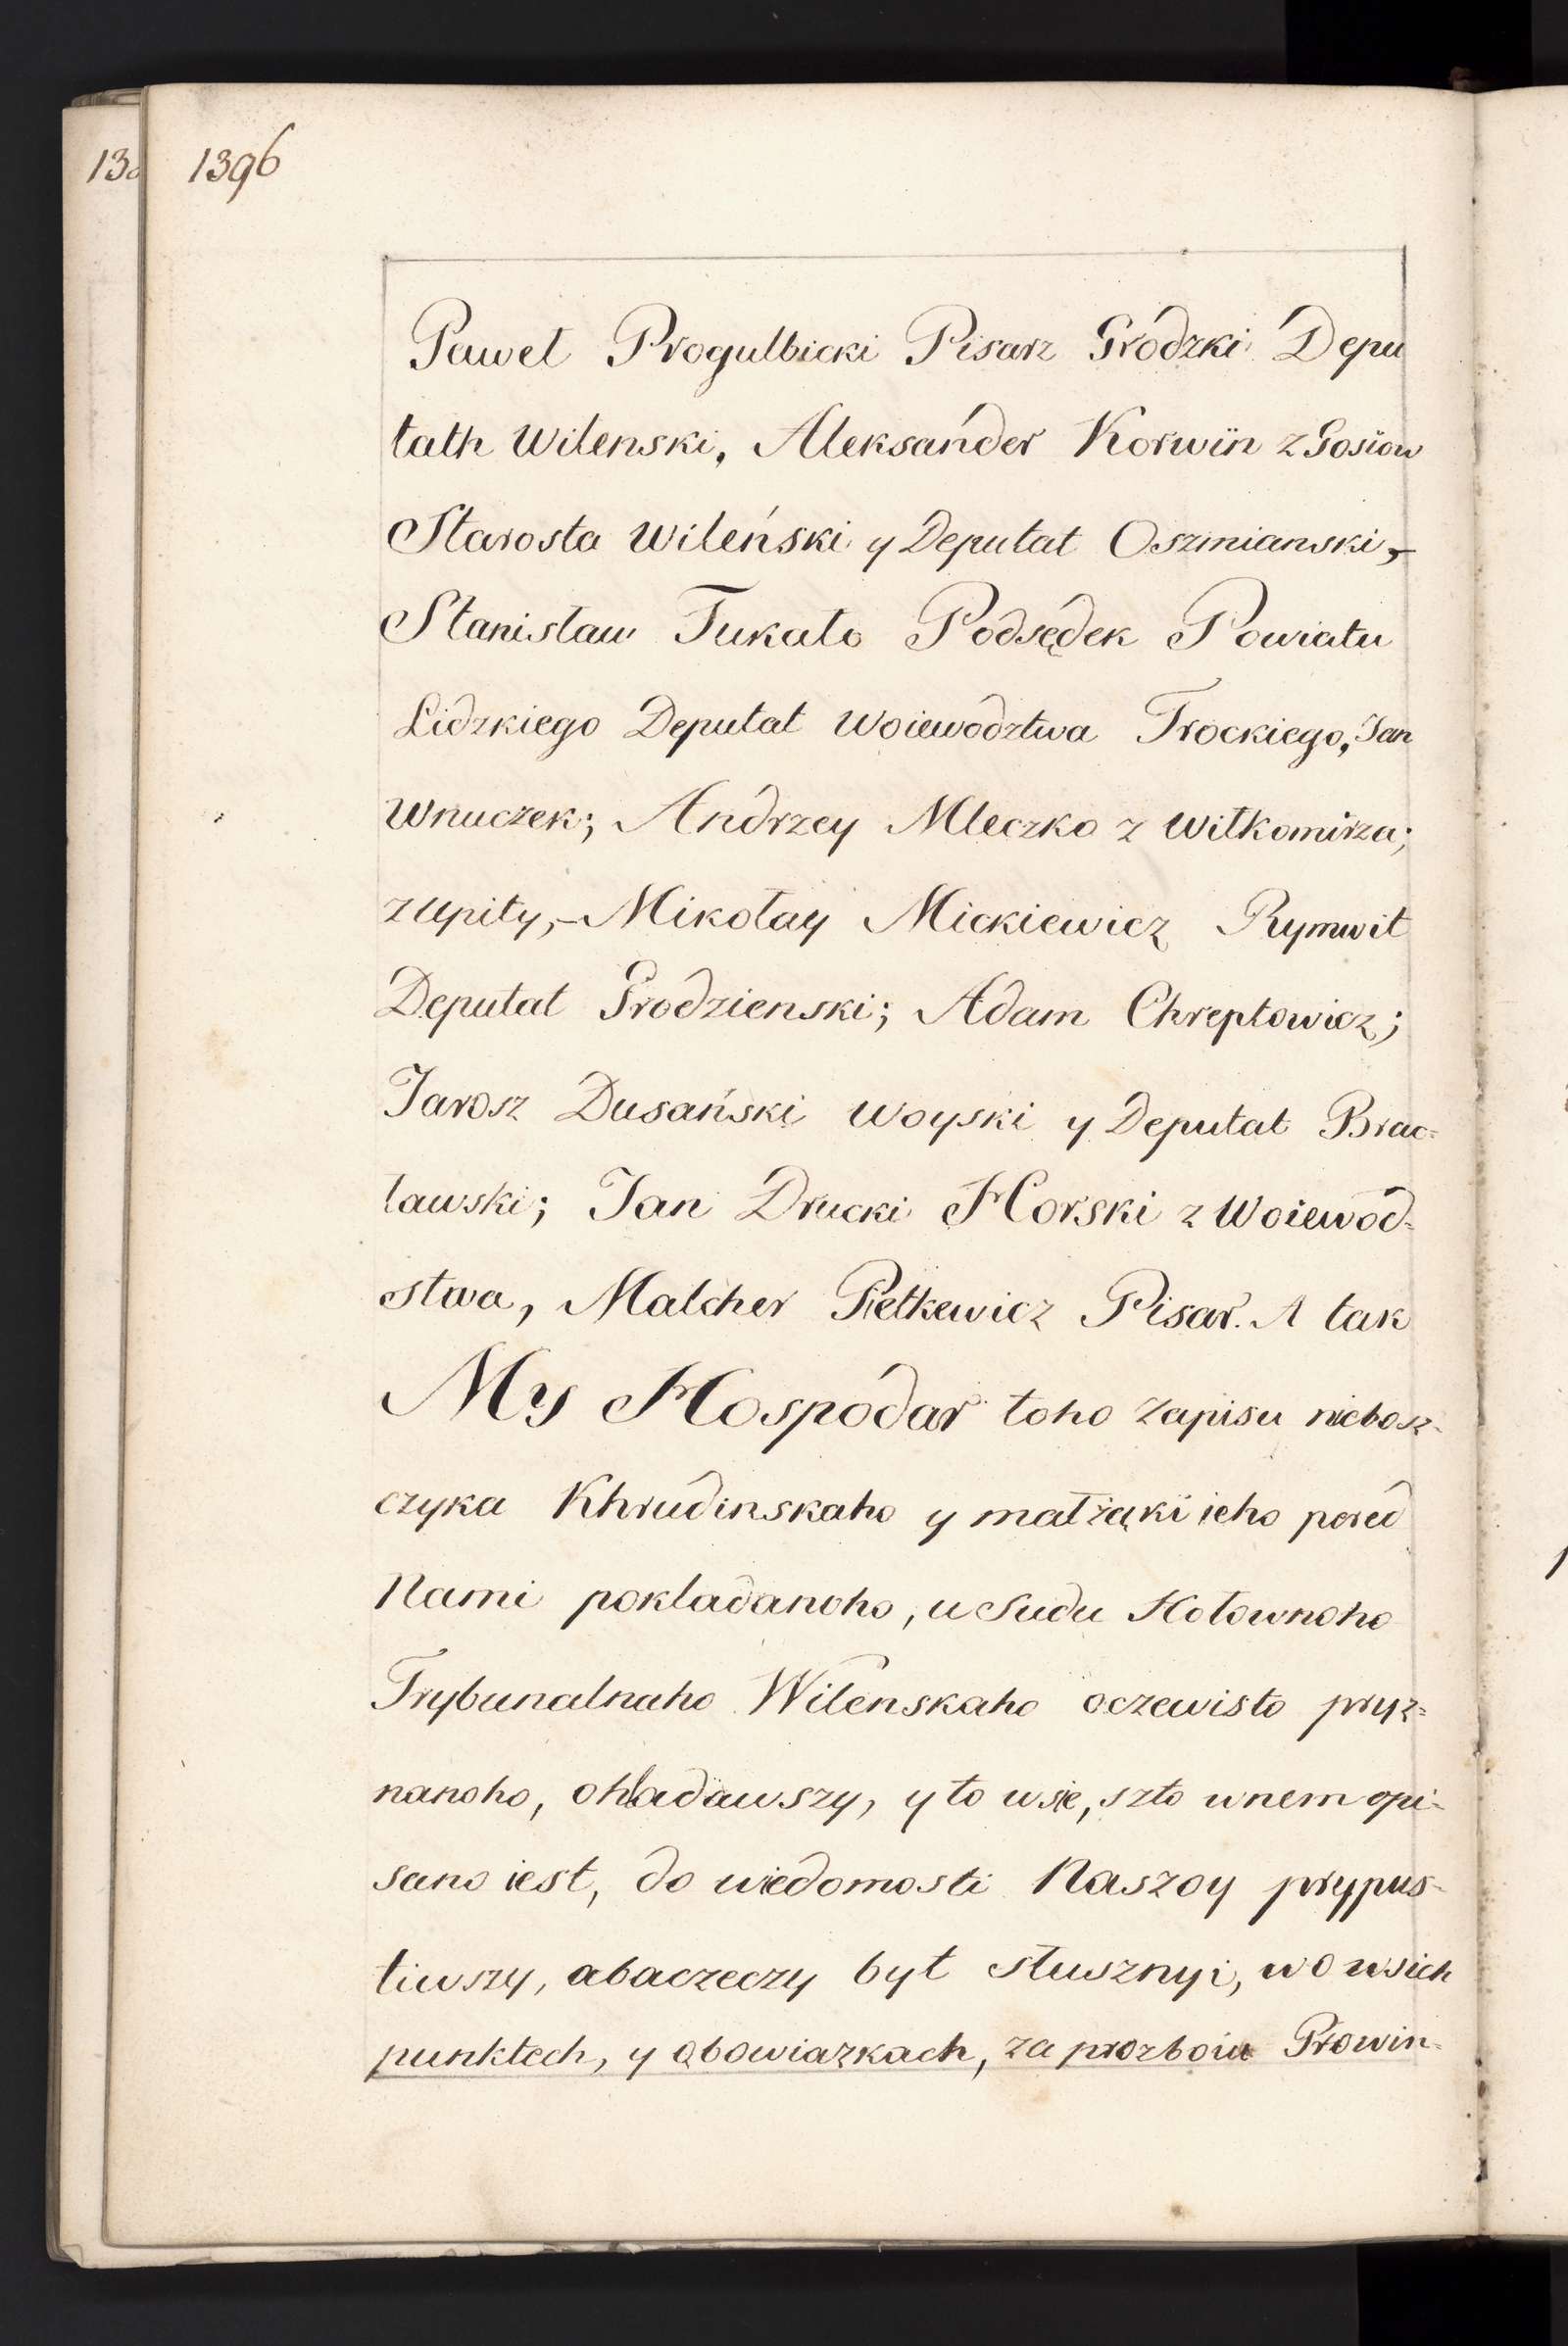 138
1396
Paweł Progulbicki Pisarz Grodzki Depu
tath Wilenski, Aleksander Korwin z Gosiow
Starosta Wileński y Deputat Oszmianski,-
Stanisław Tukało Podsędek Powiatu
Lidzkiego Deputat Woiewodztwa Trockiego, Jan
Wnuczek; Andrzey Mleczko z Wiłkomirza;
z Upity,- Mikołay Mickiewicz Rymwit
Deputat Grodzienski; Adam Chreptowicz;
Jarosz Dusański Woyski y Deputat Brac=
ławski; Jan Drucki Horski z Woiewod=
stwa, Malcher Pietkewicz Pisar. A tak
My Hospodar toho Zapisu niebosz=
czyka Khrudinskaho y małżąki ieho pered
Nami pokladanoho, u Sudu Hołownoho
Trybunalnaho Wilenskaho oczewisto pryz=
nanoho, ohladawszy, y to wsie, szto wnem opi=
sano iest, do wiedomosti Naszoy prypus=
tiwszy, abaczeczy byt słusznyi, wo wsich
punktech, y obowiazkach, za prozboiu Prowin=